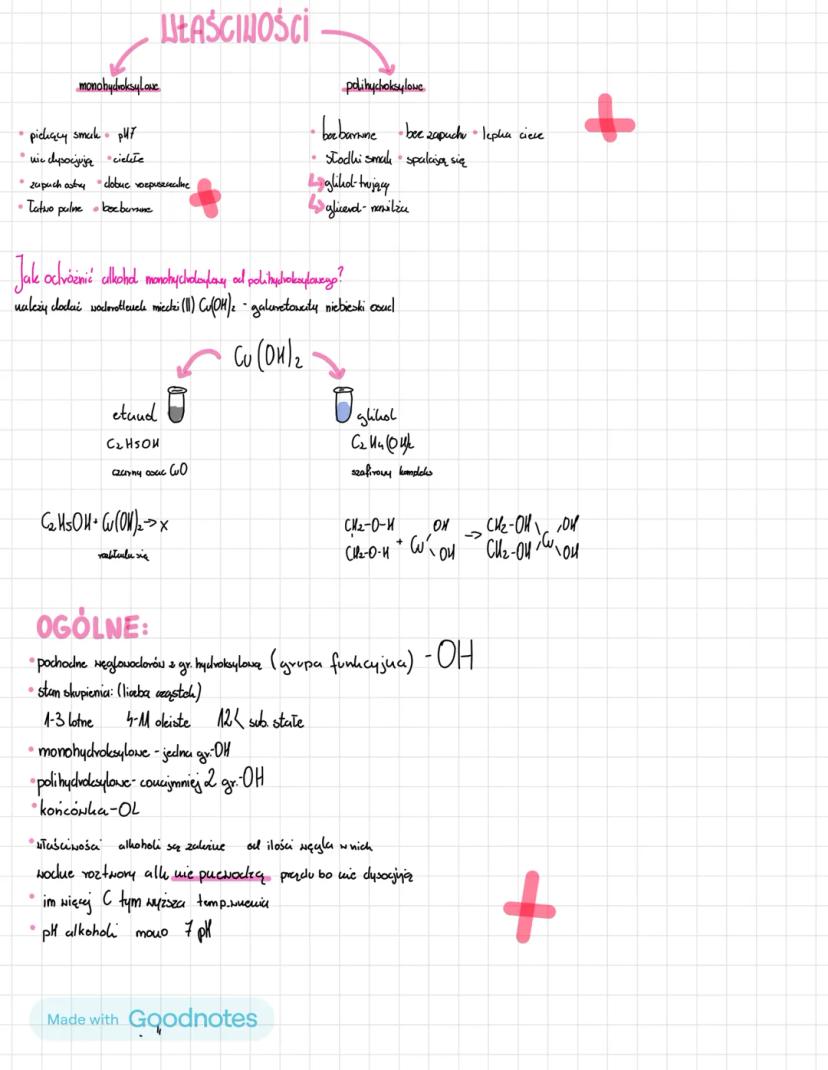 WŁAŚCIWOŚCI
monohydroksylowe
polihydroksylowe
• piekący smak • pH7
• nie dysocjują • ciekłe
• zapach ostry • dobrze rozpuszczalne
• łatwo palne • bezbarwne
• bezbarwne • bez zapachu • lepka ciecz
• słodki smak • spalają się
↳ glikol-trujący
↳ glicerol-nawilża
Jak odróżnić alkohol monohydroksylowy od polihydroksylowego?
należy dodać wodorotlenek miedzi (II) Cu(OH)2 - galaretowaty niebieski osad
Cu(OH)2
etanol
C2H5OH
czarny osad CuO
glikol
C2H4(OH)2
szafirowy kompleks
C2H5OH + Cu(OH)2 → x
rozkłada się
CH2-O-H OH CH2-OH OH
CH2-O-H + Cu OH → CH2-OH Cu OH
OGÓLNE:
• pochodne węglowodorów z gr. hydroksylową (grupa funkcyjna) -OH
• stan skupienia: (liczba cząstek)
1-3 lotne 4-11 oleiste 12< sub. stałe
• monohydroksylowe - jedna gr.-OH
• polihydroksylowe - conajmniej 2 gr.-OH
• końcówka -OL
• właściwości alkoholi są zależne od ilości węgla w nich
wodne roztwory alk nie przewodzą prądu bo nie dysocjują
• im więcej C tym wyższa temp. wrzenia
• pH alkoholi mono 7 pH
Made with Goodnotes